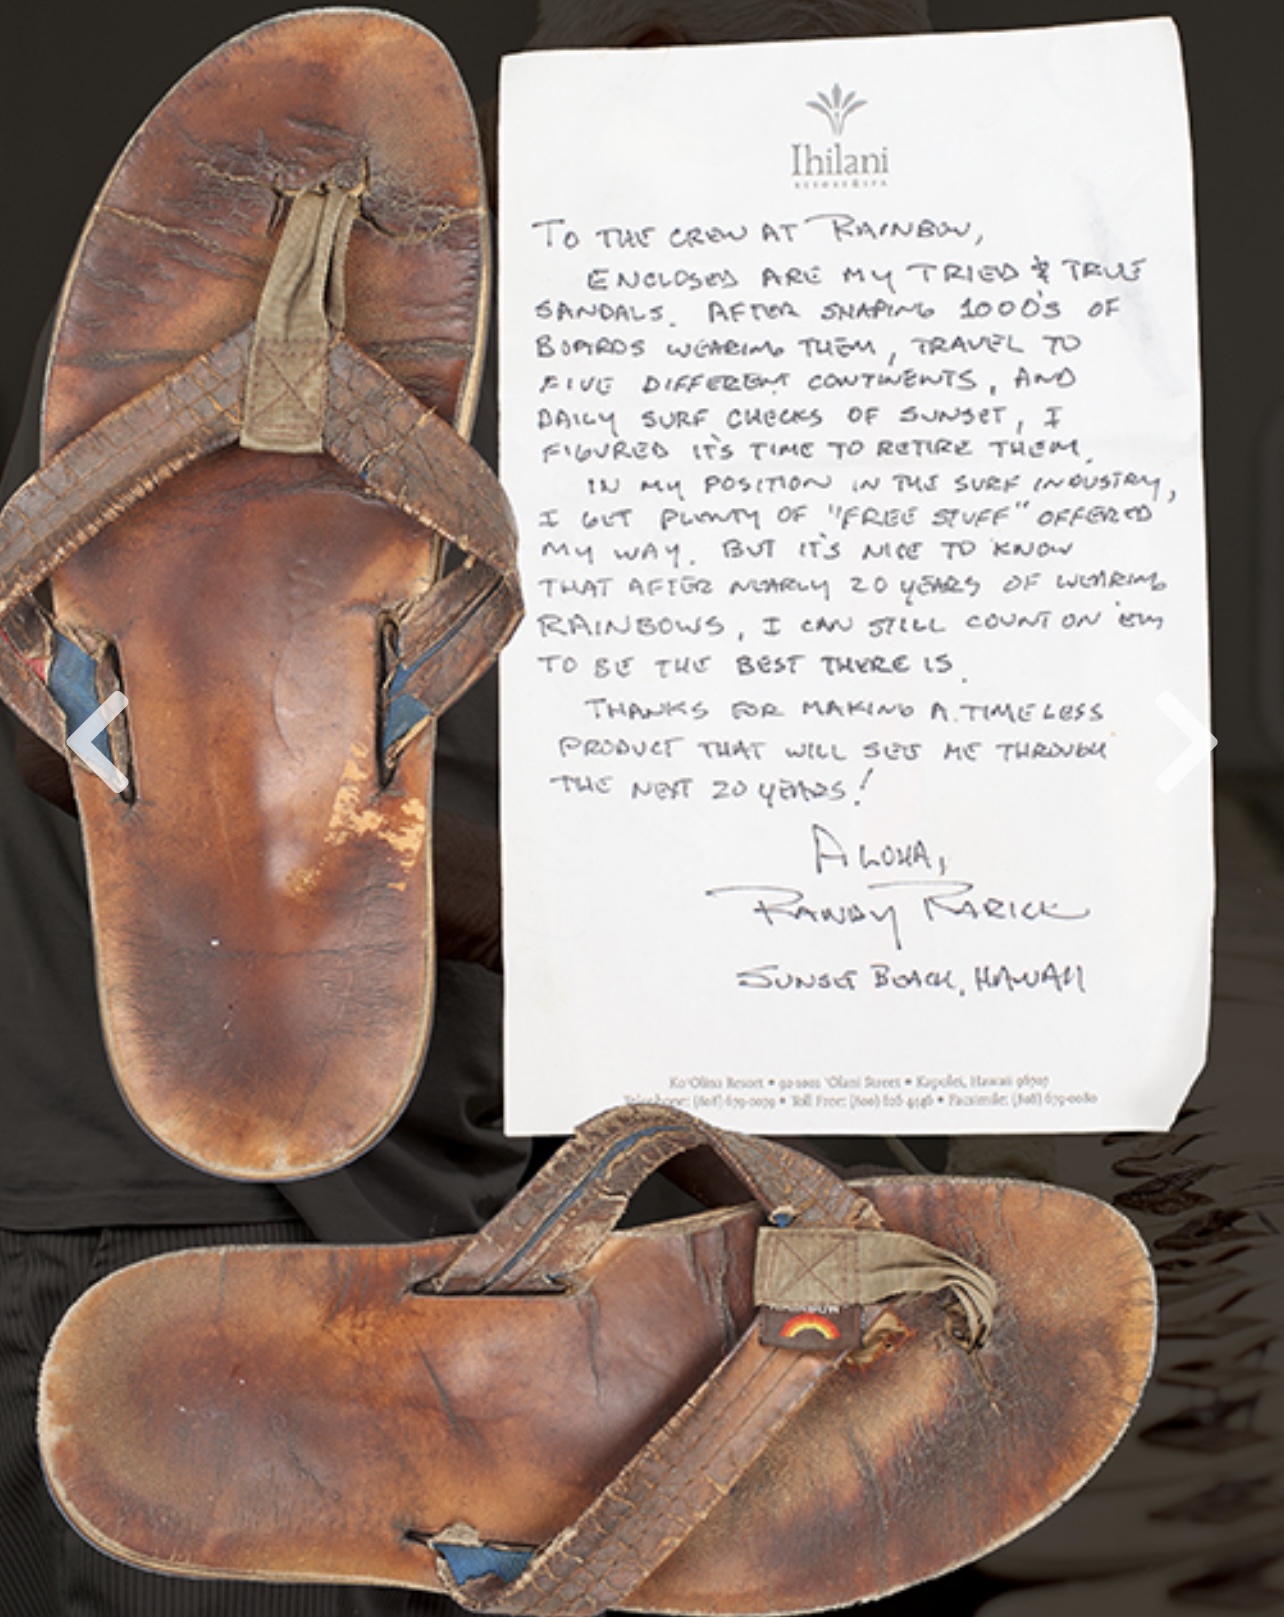 Ihilani
RESORT & SPA
TO THE CREW AT RAINBOW,
ENCLOSED ARE MY TRIED & TRUE
SANDALS. AFTER SHAPING 1000'S OF
BOARDS WEARING THEM, TRAVEL TO
FIVE DIFFERENT CONTINENTS, AND
DAILY SURF CHECKS OF SUNSET, I
FIGURED IT'S TIME TO RETIRE THEM.
IN MY POSITION IN THE SURF INDUSTRY,
I GET PLENTY OF "FREE STUFF" OFFERED
MY WAY. BUT IT'S NICE TO KNOW
THAT AFTER NEARLY 20 YEARS OF WEARING
RAINBOWS, I CAN STILL COUNT ON 'EM
TO BE THE BEST THERE IS.
THANKS FOR MAKING A TIMELESS
PRODUCT THAT WILL SEE ME THROUGH
THE NEXT 20 YEARS!
ALOHA,
RANDY RARICK
SUNSET BEACH, HAWAII
Ko'Olina Resort • 92-1001 'Olani Street • Kapolei, Hawaii 96707
Telephone: (808) 679-0079 • Toll Free: (800) 626-4446 • Facsimile: (808) 679-0080
RAINBOW